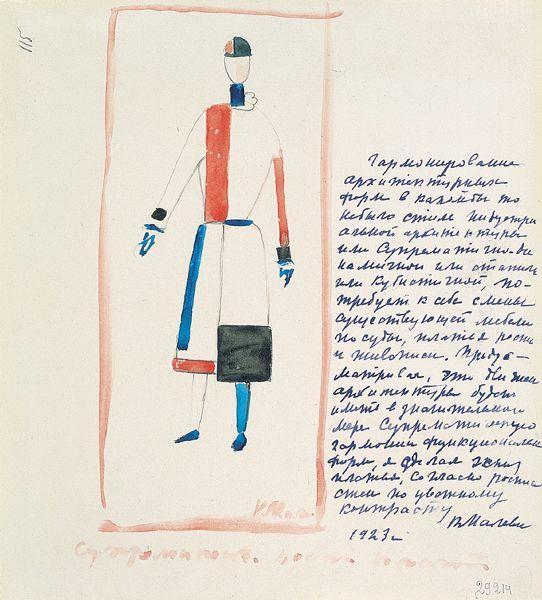 115
Гармонирование
архитектурных
форм в какомбы то
небыло стиле индустри
альной архитектуры
или Супрематично-ди
намичной или статич
или Кубистичной, по-
требует к себе смены
существующей мебели
посуды, платья росписи
и живописи. Преду-
матривая, что движен
архитектуры будет
иметь в значительной
мере Супрематическую
гармонию функциональн
форм, я сделал эскиз
платья, согласно росписи
стен по цветному
контрасту
К Малеви
1923 г
К Мал
Супрематич.
29214